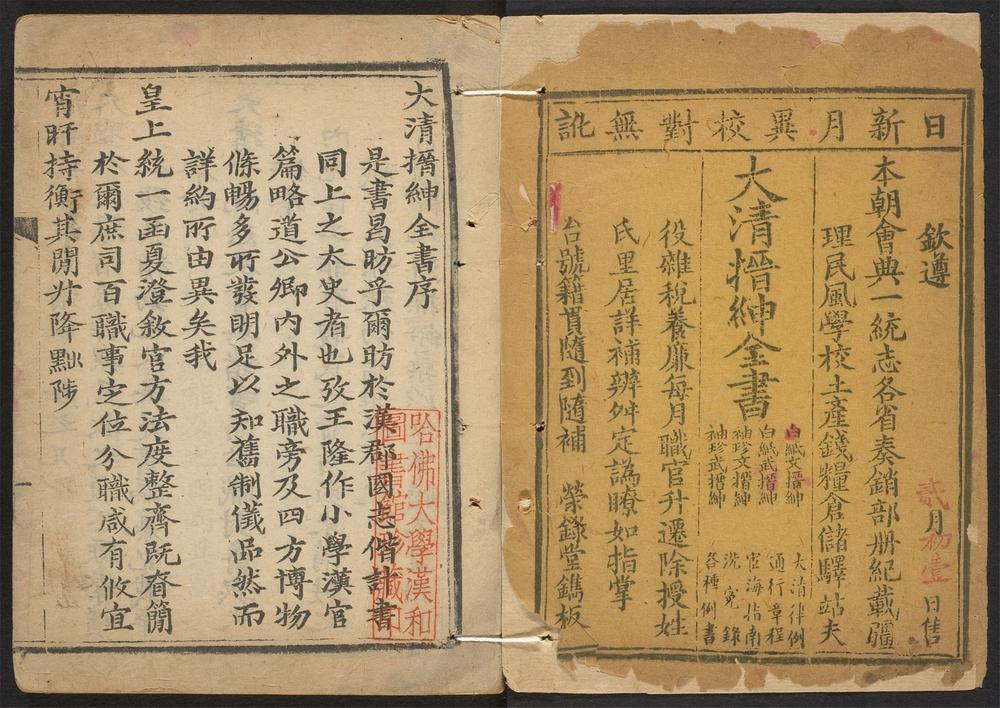 日新月異校對無訛
欽遵 貳月初壹日售
本朝會典一統志各省奏銷部册紀載疆
理民風學校土產錢糧倉儲驛站夫
大清搢紳全書
白紙文搢紳
白紙武搢紳
袖珍文搢紳
袖珍武搢紳
大清律例
通行章程
宦海指南
洗寃錄
各種例書
役雜稅養廉每月職官升遷除授姓
氏里居詳補辨舛定譌瞭如指掌
台號籍貫隨到隨補 榮錄堂鐫板
大清搢紳全書序
是書曷昉乎爾昉於漢郡國志偕計書
同上之太史者也攷王隆作小學漢官
篇略道公卿內外之職旁及四方博物
條暢多所發明足以知舊制儀品然而
詳約所由異矣我
皇上統一函夏澄敘官方法度整齊既眷簡
於爾庶司百職事定位分職咸有攸宜
宵旰持衡其閒升降黜陟
哈佛大學漢和
圖書館珍藏印